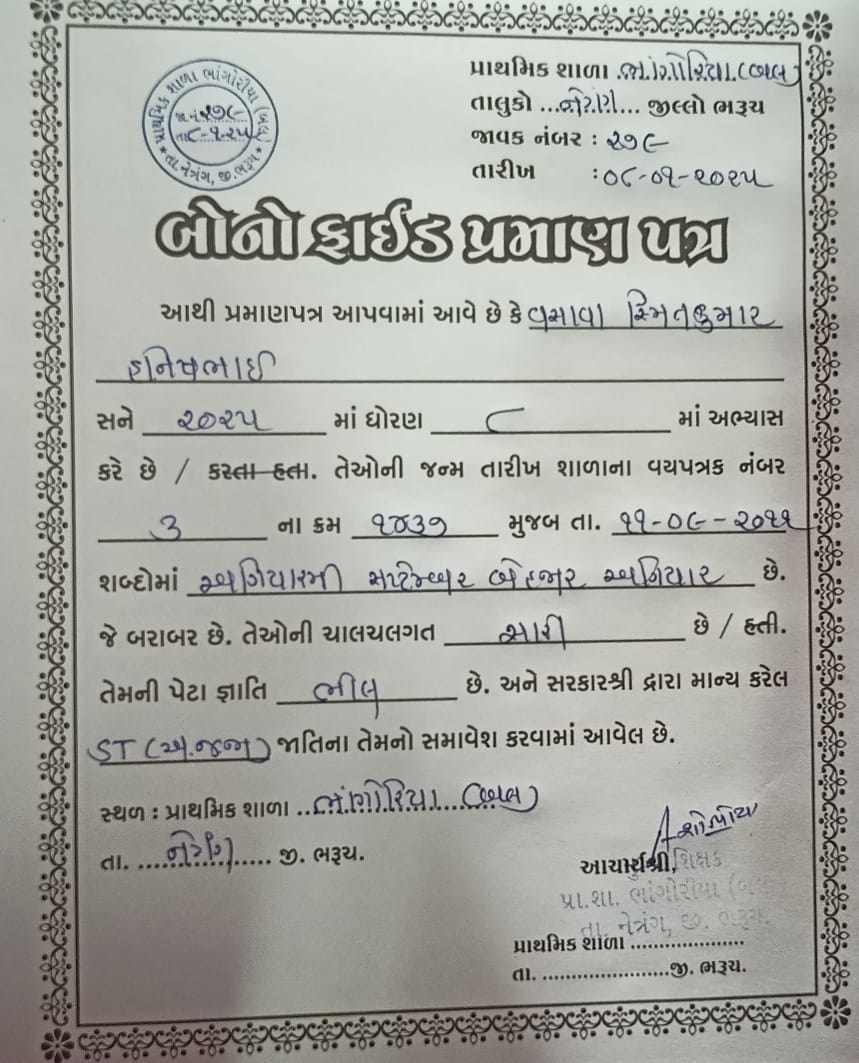 પ્રાથમિક શાળા ભાંગોરીયા (બલ)
જા.નં ૨૭૯
તા ૮-૧-૨૫
તા. નેત્રંગ, જી. ભરૂચ
પ્રાથમિક શાળા ભાંગોરિયા (બલ)
તાલુકો ...નેત્રંગ... જીલ્લો ભરૂચ
જાવક નંબર : ૨૭૯
તારીખ : ૦૮-૦૧-૨૦૨૫
બોનોફાઈડ પ્રમાણ પત્ર
આથી પ્રમાણપત્ર આપવામાં આવે છે કે વસાવા સ્મિતકુમાર
સને ૨૦૨૫ માં ધોરણ ૮ માં અભ્યાસ
કરે છે / કરતા હતા. તેઓની જન્મ તારીખ શાળાના વયપત્રક નંબર
૩ ના ક્રમ ૧૪૩૭ મુજબ તા. ૧૧-૦૯-૨૦૧૧
શબ્દોમાં અગિયારમી સપ્ટેમ્બર બેહજાર અગિયાર છે.
જે બરાબર છે. તેઓની ચાલચલગત સારી છે / હતી.
તેમની પેટા જ્ઞાતિ ભીલ છે. અને સરકારશ્રી દ્વારા માન્ય કરેલ
ST (અ.જજા) જાતિના તેમનો સમાવેશ કરવામાં આવેલ છે.
સ્થળ : પ્રાથમિક શાળા ..ભાંગોરિયા (બલ)
તા. ......નેત્રંગ...... જી. ભરૂચ.
આચાર્યશ્રી, શિક્ષક
પ્રા.શા. ભાંગોરીયા (બ
તા. નેત્રંગ, જી. ભરૂચ.
પ્રાથમિક શાળા ....................
તા. .......................જી. ભરૂચ.